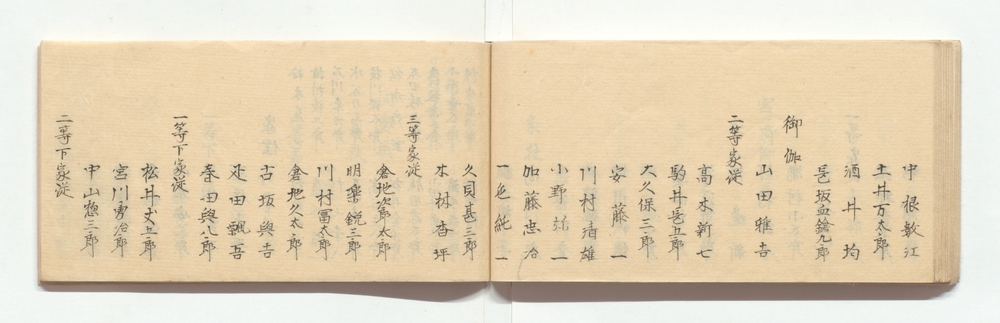 中根敏江
土井万太郎
酒井均
御伽
山田雅吉
二等家従
高木新七
駒井邑五郎
大久保三郎
安藤一
川村清雄
小野
加藤忠治
一色純一
久貝甚三郎
三等家従
本村杏坪
倉地次郎太郎
明楽鋭三郎
川村冨太郎
倉地久太郎
古坂與吉
疋田
一等下家従
春田與八郎
松井丈五郎
宮川勇治郎
中山惣三郎
二等下家従